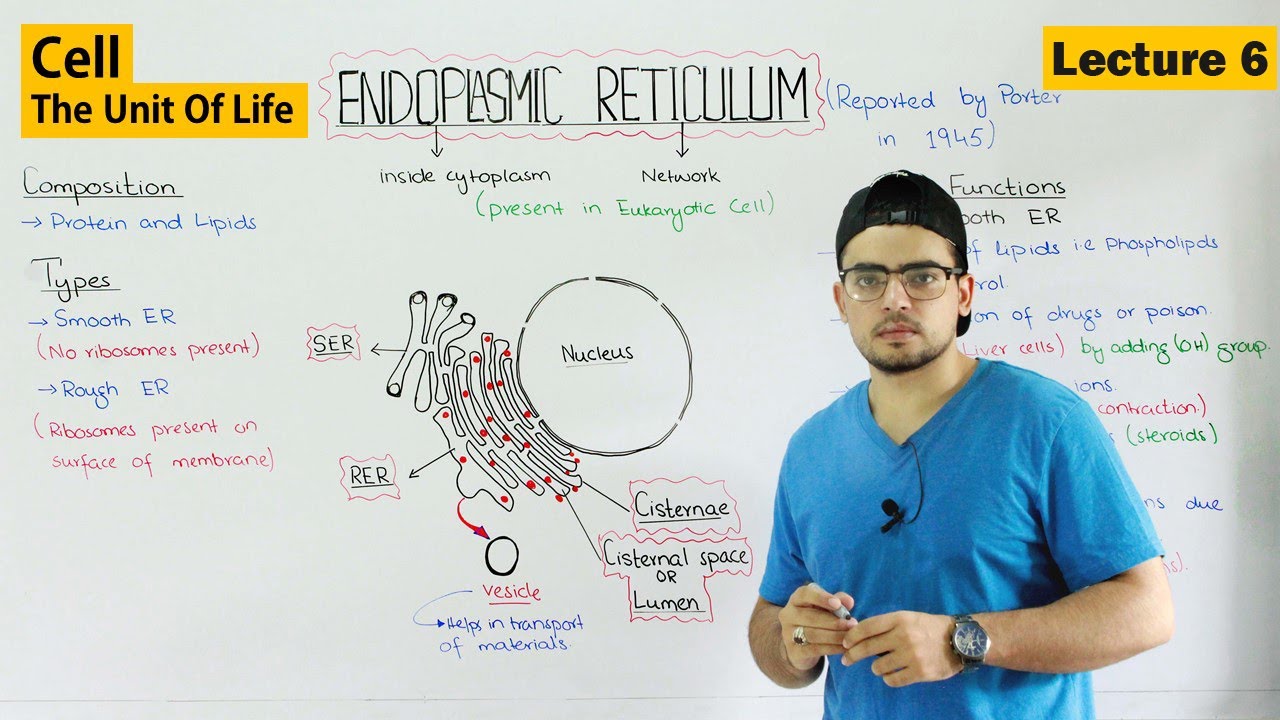 Cell
The Unit Of Life
Lecture 6
ENDOPLASMIC RETICULUM
(Reported by Porter
in 1945)
inside cytoplasm
Network
(present in Eukaryotic Cell)
Composition
→ Protein and Lipids
Types
→ Smooth ER
(No ribosomes present)
→ Rough ER
(Ribosomes present on
surface of membrane)
SER
RER
Nucleus
Cisternae
Cisternal space
OR
Lumen
vesicle
Helps in transport
of materials.
Functions
ER
of lipids i.e Phospholipds
of drugs or poison.
Liver cells) by adding (OH) group.
contraction.)
(steroids)
due